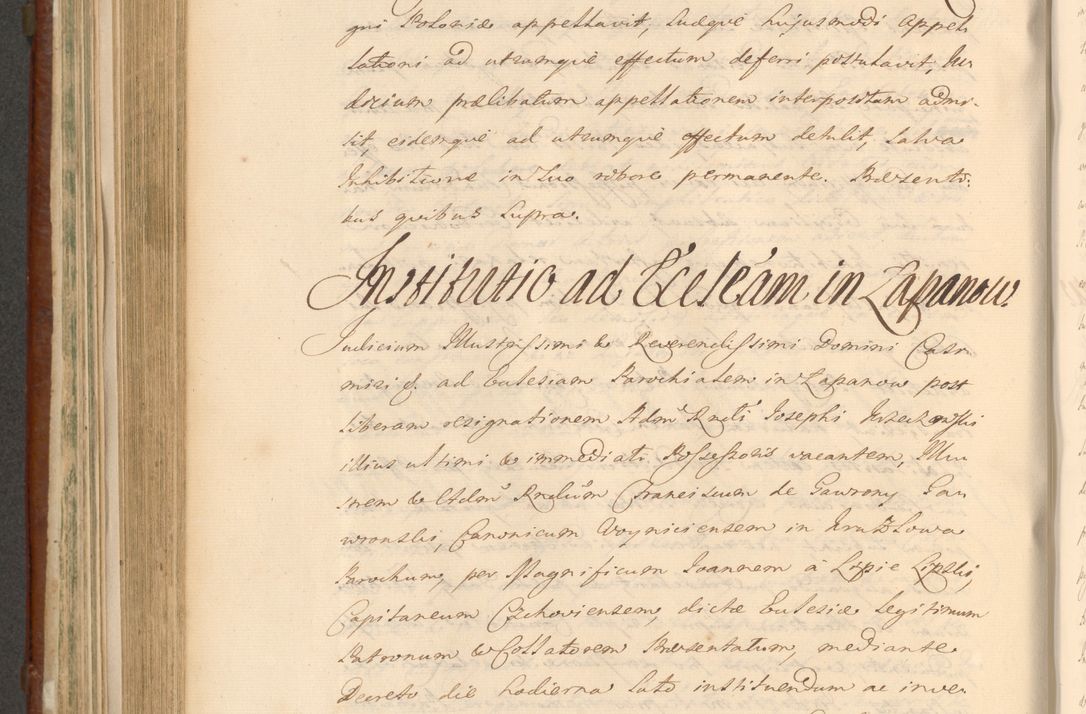 qni Poloniæ appellavit, Sudeqvè hujusmodi Appel
lationi ad utrumqvè effectum deferri postulavit, Iu
dicium prælibatum appellationem interpositam admi-
sit, eidemqvè ad utrumqvè effectum detulit, Salva
Inhibitione in Suo robore permanente. Præsenti-
bus quibus Supra.
Institutio ad Ecclam in Łapanow.
Judicium Illustrissimi & Reverendissimi Domini Casi
miri &. ad Eclesiam Parochialem in Łapanow post
liberam resignationem Admo Rndi Iosephi
illius ultimi & immediati Possessoris vacantem, Illu
strem & Admo Rndum Franciscum de Gawrony Ga
wronski, Canonicum Woyniciensem in Kruzlowa
Parochum, per Magnificum Ioannem à Lipie Lipski,
Capitaneum Czchoviensem, dictæ Eclesiæ legitimum
Patronum & Collatorem Præsentatum, mediante
Decreto die hodierna lato instituendum ac inve-